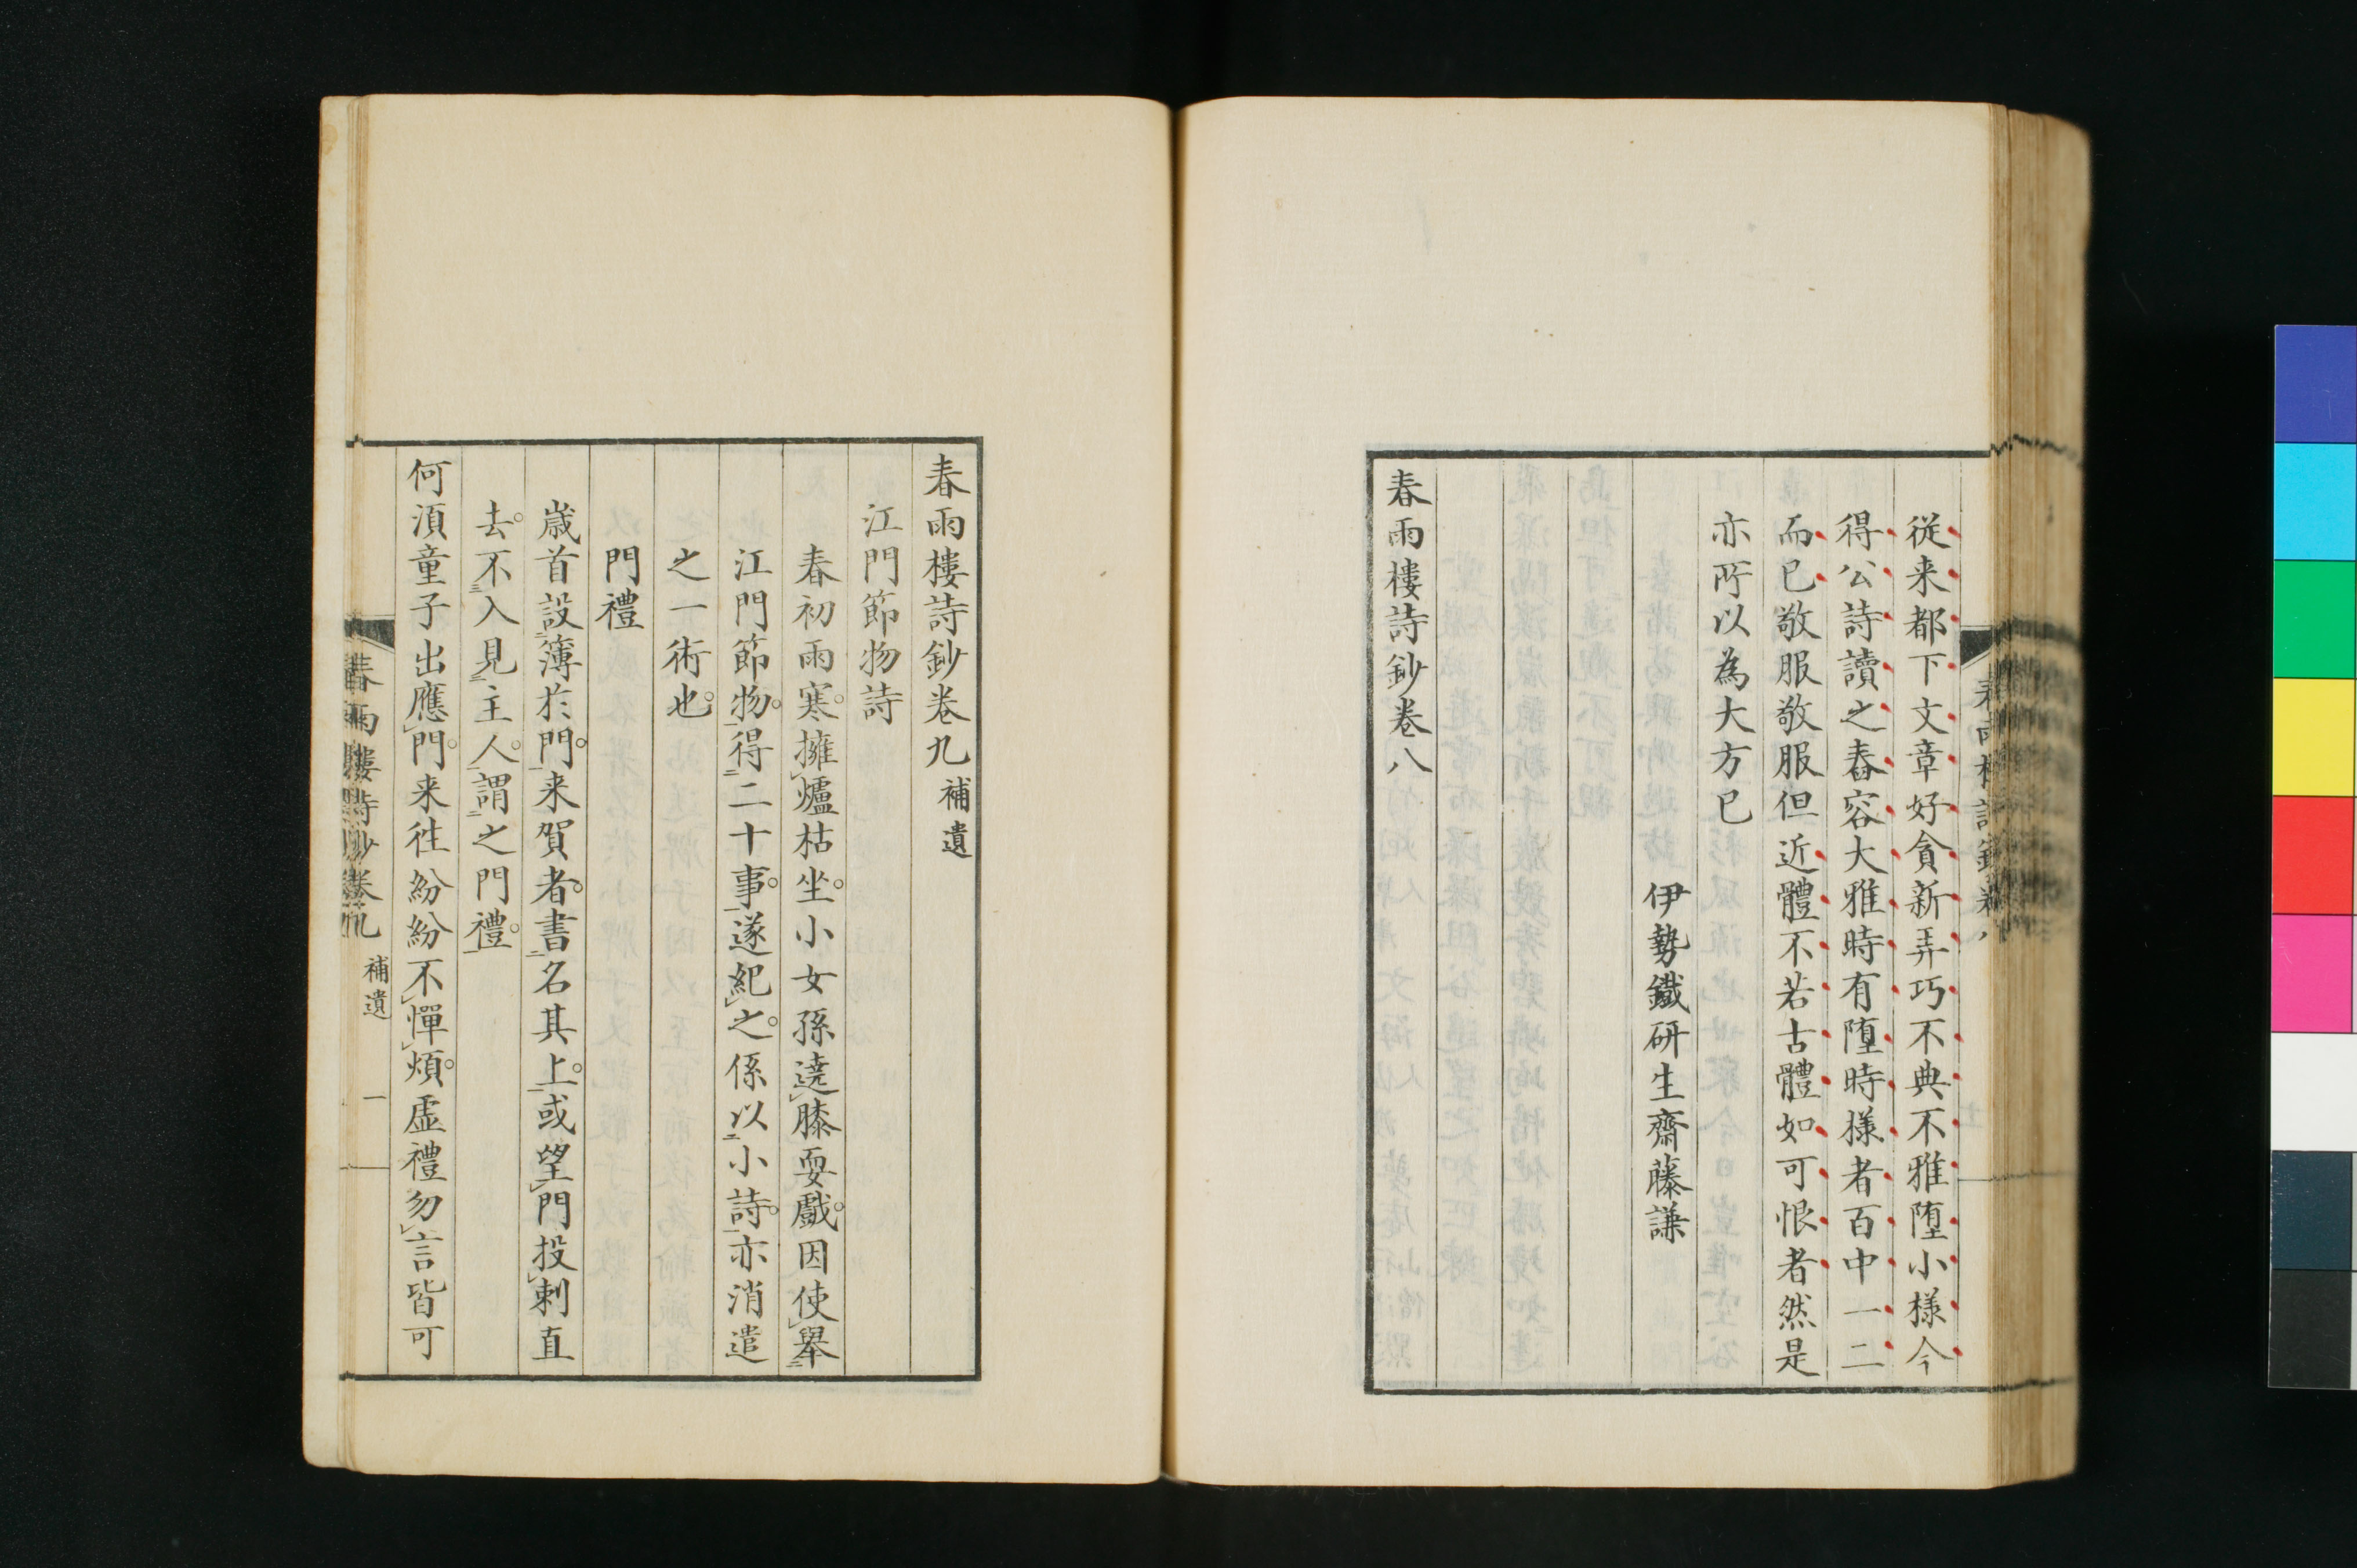 従来都下文章好貪新弄巧不典不雅堕小様今
得公詩讀之舂容大雅時有堕時様者百中一二
而已敬服敬服但近體不若古體如可恨者然是
亦所以為大方已
伊勢鐵研生齋藤謙
春雨樓詩鈔卷八
春雨樓詩鈔卷九 補遺
江門節物詩
春初雨寒。擁爐枯坐。小女孫遶膝耍戲。因使舉
江門節物。得二十事。遂紀之。係以小詩。亦消遣
之一術也。
門禮
歳首設簿於門。来賀者。書名其上。或望門投刺直
去。不入見主人。謂之門禮。
何須童子出應門。来徃紛紛不憚煩。虛禮勿言皆可
春雨樓詩鈔卷九 補遺 一